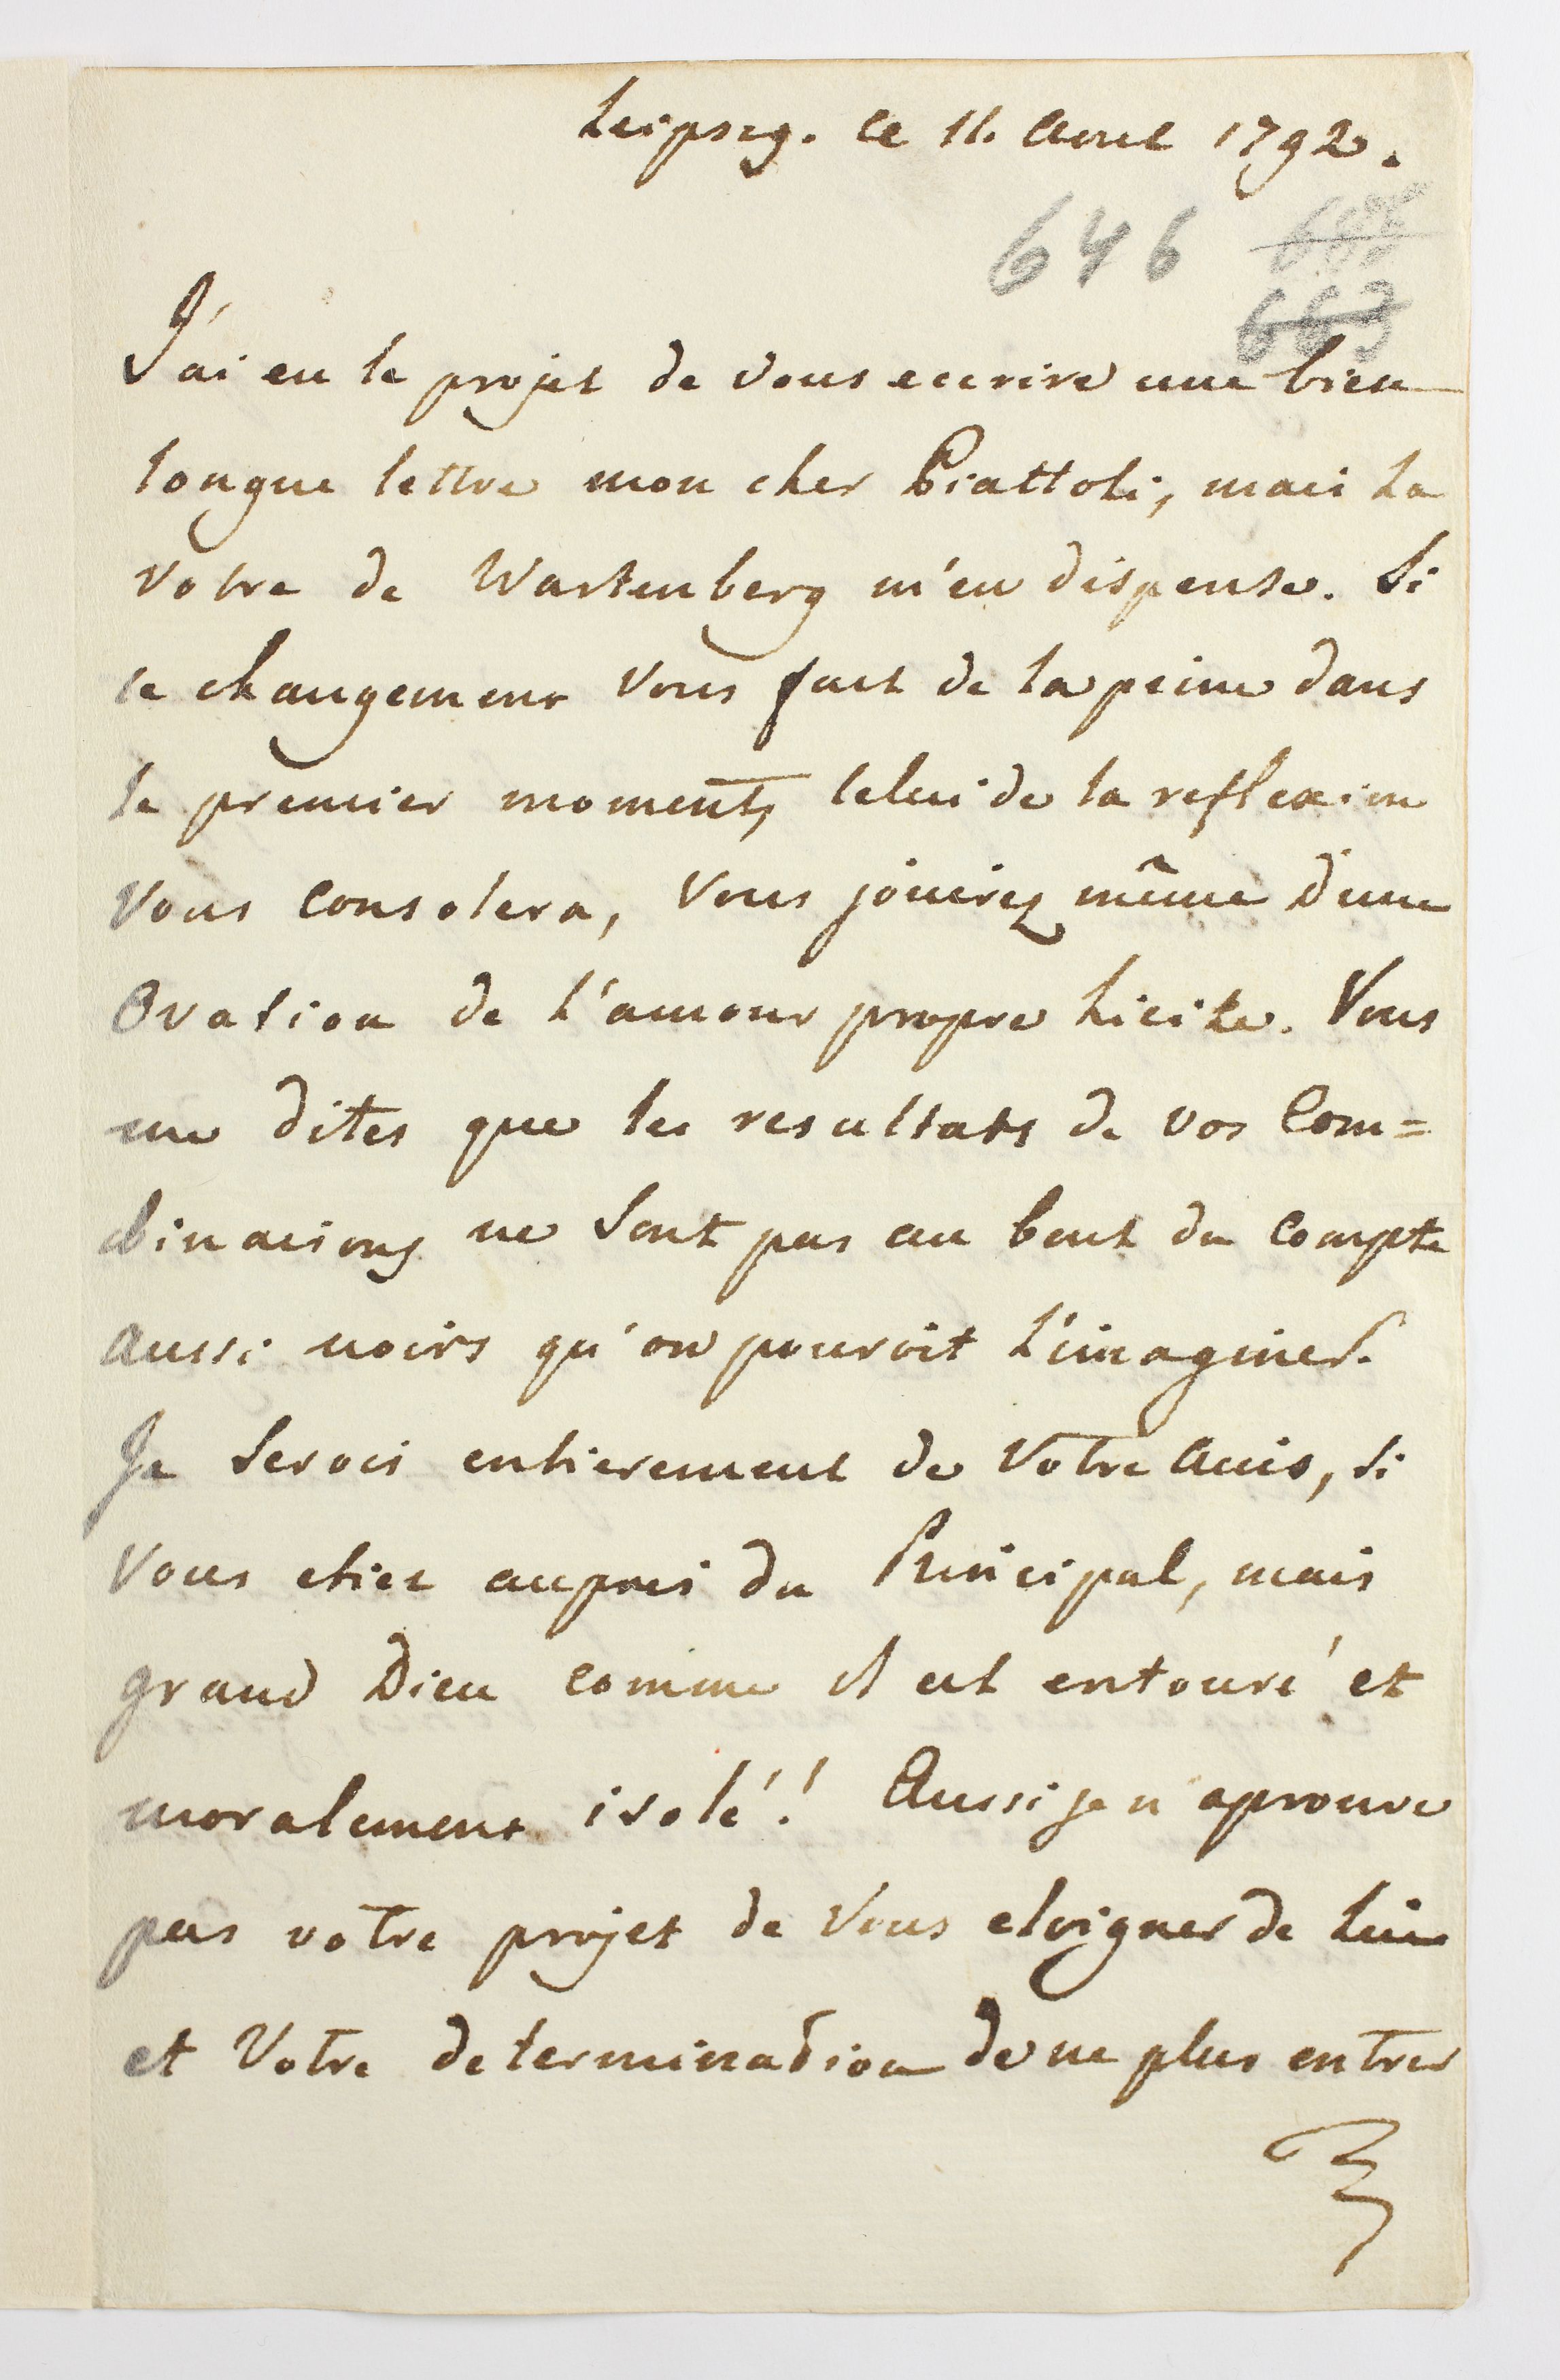 Leipsig. le 11. Avril 1792.
646
663
J'ai eu le projet de vous ecrire une bien
longue lettre mon cher Piattoli, mais la
votre de Wartenberg m'en dispense. Si
ce changement vous fait de la peine dans
le premier moment, celui de la reflexion
vous consolera, vous jouirez même d'une
Ovation de l'amour propre licite. Vous
me dites que les resultats de vos Com=
binaisons ne sont pas au bout du compte
aussi noirs qu'on pouroit l'imaginer.
Je serois entierement de votre avis, si
vous etiez aupres du Principal, mais
grand Dieu comme il est entouré et
moralement isolé! Aussi je n'aprouve
pas votre projet de vous eloigner de lui
et votre determination de ne plus entrer